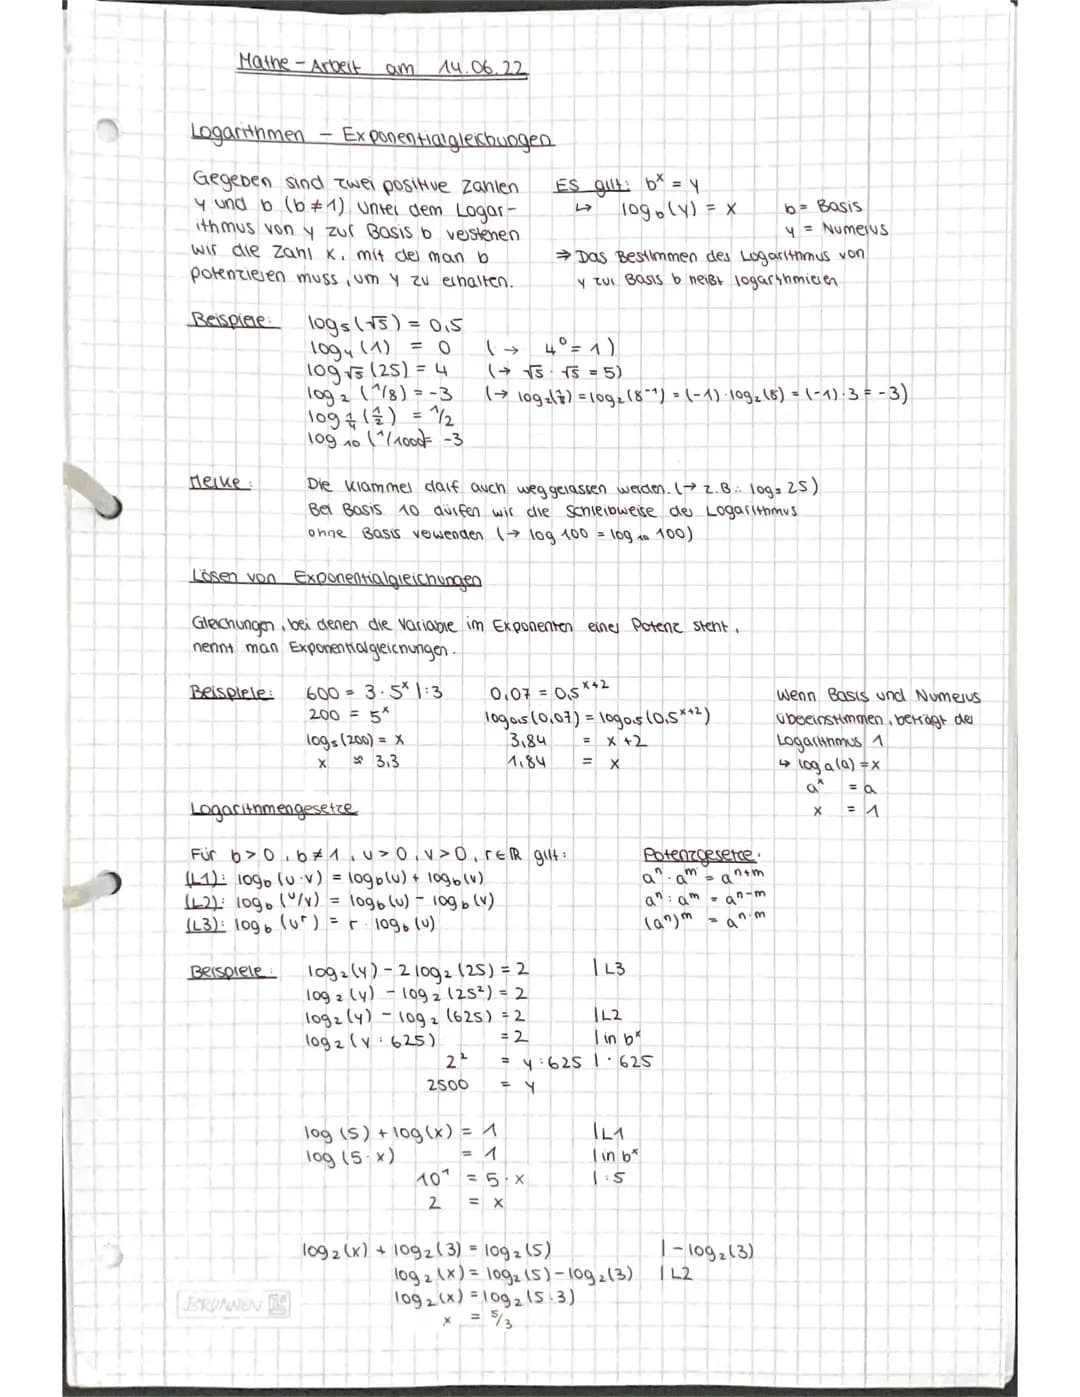 Mathe-Arbeit am 14.06.22
Logarithmen - Exponentialgleichungen
Gegeben sind zwei positive Zahlen
y und b (b≠1) Unter dem Logar-
ithmus von y zur Basis b verstehen
wir die Zahl x, mit der man b
potenzieren muss, um y zu erhalten.
Es gilt: bˣ = y
↳ log_b(y) = x
b = Basis
y = Numerus
⇒ Das Bestimmen des Logarithmus von
y zur Basis b heißt logarithmieren
Beispiele: log₅(√5) = 0,5
log₄(1) = 0 (→ 4⁰ = 1)
log_√5(25) = 4 (→ √5 · √5 = 5)
log₂(1/8) = -3 (→ log₂(1/8) = log₂(8⁻¹) = (-1)·log₂(8) = (-1)·3 = -3)
log_1/4(1/2) = 1/2
log₁₀(1/1000) = -3
Merke: Die Klammer darf auch weggelassen werden. (→ z.B.: log₅ 25)
Bei Basis 10 dürfen wir die Schreibweise des Logarithmus
ohne Basis verwenden (→ log 100 = log₁₀ 100)
Lösen von Exponentialgleichungen
Gleichungen, bei denen die Variable im Exponenten einer Potenz steht,
nennt man Exponentialgleichungen.
Beispiele: 600 = 3·5ˣ |:3
200 = 5ˣ
log₅(200) = x
x ≈ 3,3
0,07 = 0,5ˣ⁺²
log₀,₅(0,07) = log₀,₅(0,5ˣ⁺²)
3,84 = x+2
1,84 = x
Wenn Basis und Numerus
übereinstimmen, beträgt der
Logarithmus 1
↳ log_a(a) = x
aˣ = a
x = 1
Logarithmengesetze
Für b>0, b≠1, u>0, v>0, r∈ℝ gilt:
(L1): log_b(u·v) = log_b(u) + log_b(v)
(L2): log_b(u/v) = log_b(u) - log_b(v)
(L3): log_b(uʳ) = r·log_b(u)
Potenzgesetze:
aⁿ · aᵐ = aⁿ⁺ᵐ
aⁿ : aᵐ = aⁿ⁻ᵐ
(aⁿ)ᵐ = aⁿ·ᵐ
Beispiele: log₂(y) - 2log₂(25) = 2 |L3
log₂(y) - log₂(25²) = 2
log₂(y) - log₂(625) = 2 |L2
log₂(y:625) = 2 |in bˣ
2² = y:625 |·625
2500 = y
log(5) + log(x) = 1 |L1
log(5·x) = 1 |in bˣ
10¹ = 5·x |:5
2 = x
log₂(x) + log₂(3) = log₂(5) |-log₂(3)
log₂(x) = log₂(5) - log₂(3) |L2
log₂(x) = log₂(5:3)
x = 5/3
BRUNNEN